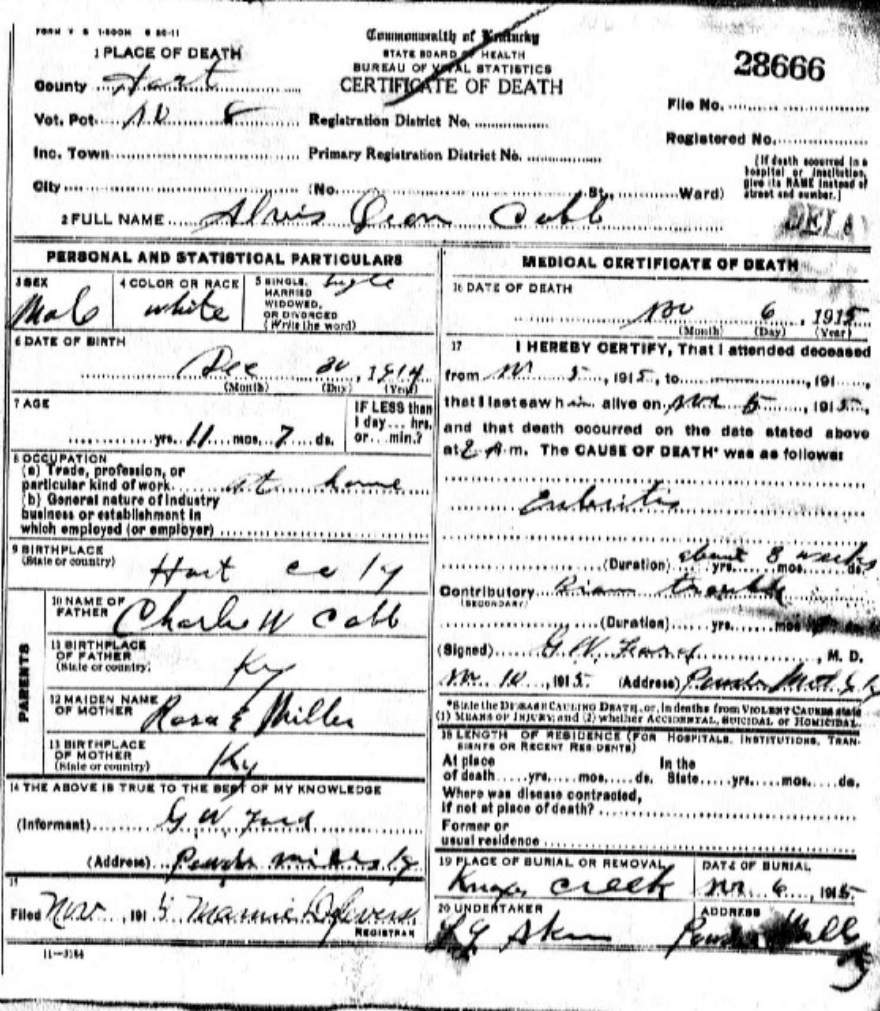 FORM V S 1-500M 6 20-11
Commonwealth of Kentucky
STATE BOARD OF HEALTH
BUREAU OF VITAL STATISTICS
CERTIFICATE OF DEATH
28666
1 PLACE OF DEATH
County Hart
Vot. Pct. No 8 Registration District No.
File No.
Registered No.
Inc. Town Primary Registration District No.
City (No. St., Ward)
(If death occurred in a
hospital or institution,
give its NAME instead of
street and number.)
2 FULL NAME Alvis Dean Cobb
PERSONAL AND STATISTICAL PARTICULARS
3 SEX
Male
4 COLOR OR RACE
white
5 SINGLE, Single
MARRIED
WIDOWED,
OR DIVORCED
(Write the word)
6 DATE OF BIRTH
Dec 30, 1914
(Month) (Day) (Year)
7 AGE
yrs. 11 mos. 7 ds.
IF LESS than
1 day... hrs.
or... min.?
8 OCCUPATION
(a) Trade, profession, or
particular kind of work at home
(b) General nature of industry
business or establishment in
which employed (or employer)
9 BIRTHPLACE
(State or country)
Hart co Ky
PARENTS
10 NAME OF
FATHER Charlie W Cobb
11 BIRTHPLACE
OF FATHER
(State or country) Ky
12 MAIDEN NAME
OF MOTHER Rosa E Miller
13 BIRTHPLACE
OF MOTHER
(State or country) Ky
14 THE ABOVE IS TRUE TO THE BEST OF MY KNOWLEDGE
(Informant) G W Ford
(Address) Powder mills Ky
15
Filed Nov, 1915 Mamie
REGISTRAR
11-3184
MEDICAL CERTIFICATE OF DEATH
16 DATE OF DEATH
Nov 6, 1915
(Month) (Day) (Year)
17 I HEREBY CERTIFY, That I attended deceased
from 5, 1915, to, 191,
that I last saw him alive on Nov 5, 1915,
and that death occurred on the date stated above
at 2 A.m. The CAUSE OF DEATH* was as follows:
(Duration) about 3 weeks yrs. mos. ds.
Contributory
(SECONDARY)
(Duration) yrs. mos.
(Signed) G W, M. D.
10, 1915 (Address) Powder
*State the DISEASE CAUSING DEATH, or, in deaths from VIOLENT CAUSES state
(1) MEANS OF INJURY; and (2) whether ACCIDENTAL, SUICIDAL or HOMICIDAL.
18 LENGTH OF RESIDENCE (FOR HOSPITALS, INSTITUTIONS, TRAN-
SIENTS OR RECENT RESIDENTS)
At place In the
of death yrs. mos. ds. State yrs. mos. ds.
Where was disease contracted,
if not at place of death?
Former or
usual residence
19 PLACE OF BURIAL OR REMOVAL
Creek
DATE OF BURIAL
Nov 6, 1915
20 UNDERTAKER
Akin
ADDRESS
Powder Mills